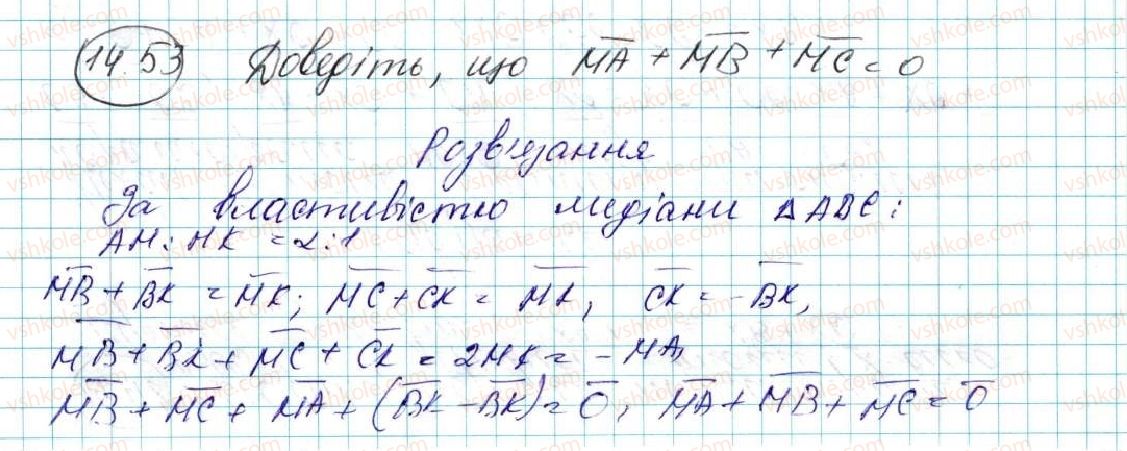 14.53 Доведіть, що MA + MB + MC = 0
Розв'язання
За властивістю медіани ΔABC:
AM : MK = 2 : 1
MB + BK = MK; MC + CK = MK, CK = -BK,
MB + BK + MC + CK = 2MK = -MA,
MB + MC + MA + (BK - BK) = 0, MA + MB + MC = 0